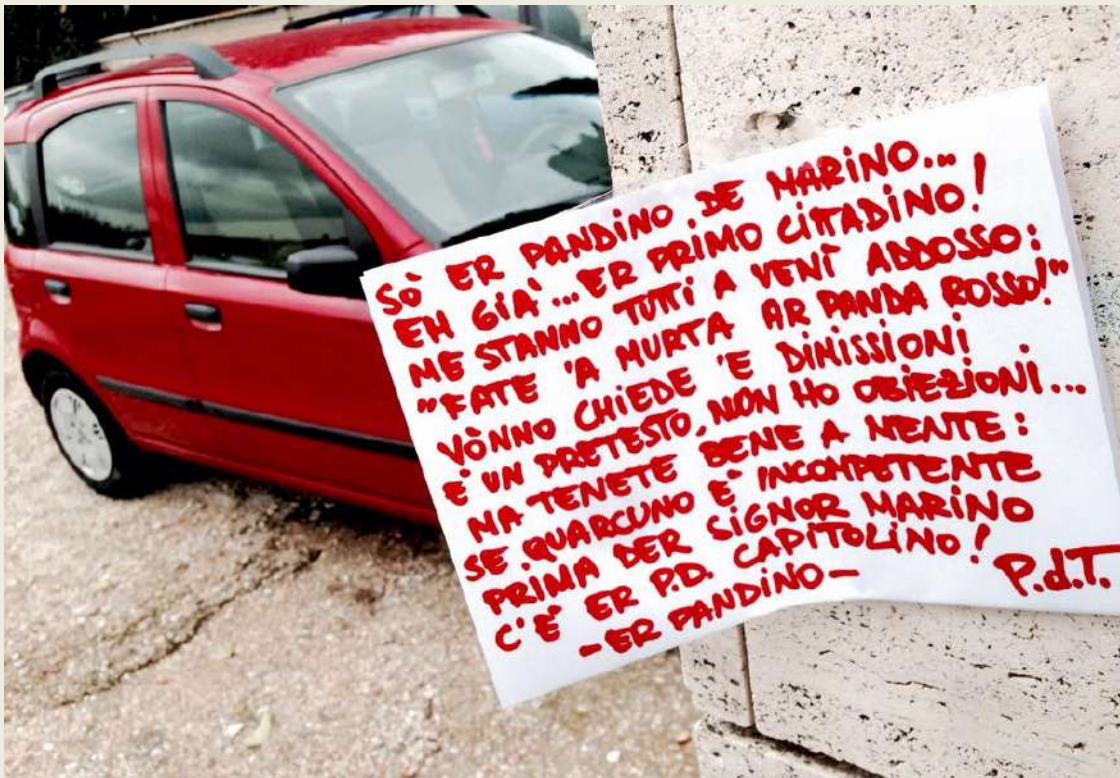 SÒ ER PANDINO DE MARINO...
EH GIA'... ER PRIMO CITTADINO!
ME STANNO TUTTI A VENÌ ADDOSSO:
"FATE 'A MURTA AR PANDA ROSSO!"
VÒNNO CHIEDE 'E DIMISSIONI
E' UN PRETESTO, NON HO OBIEZIONI...
MA TENETE BENE A MENTE:
SE QUARCUNO E' INCOMPETENTE
PRIMA DER SIGNOR MARINO
C'E' ER P.D. CAPITOLINO!
- ER PANDINO -
P.d.T.